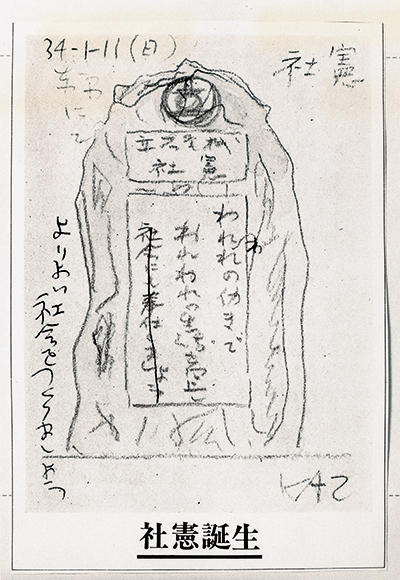 34-1-11(日)
車中にて
社憲
社憲
われわれの仂きで
われわれの生活を向上し
社会に奉仕しましょう
よりよい社会をつくりましょう
社憲誕生